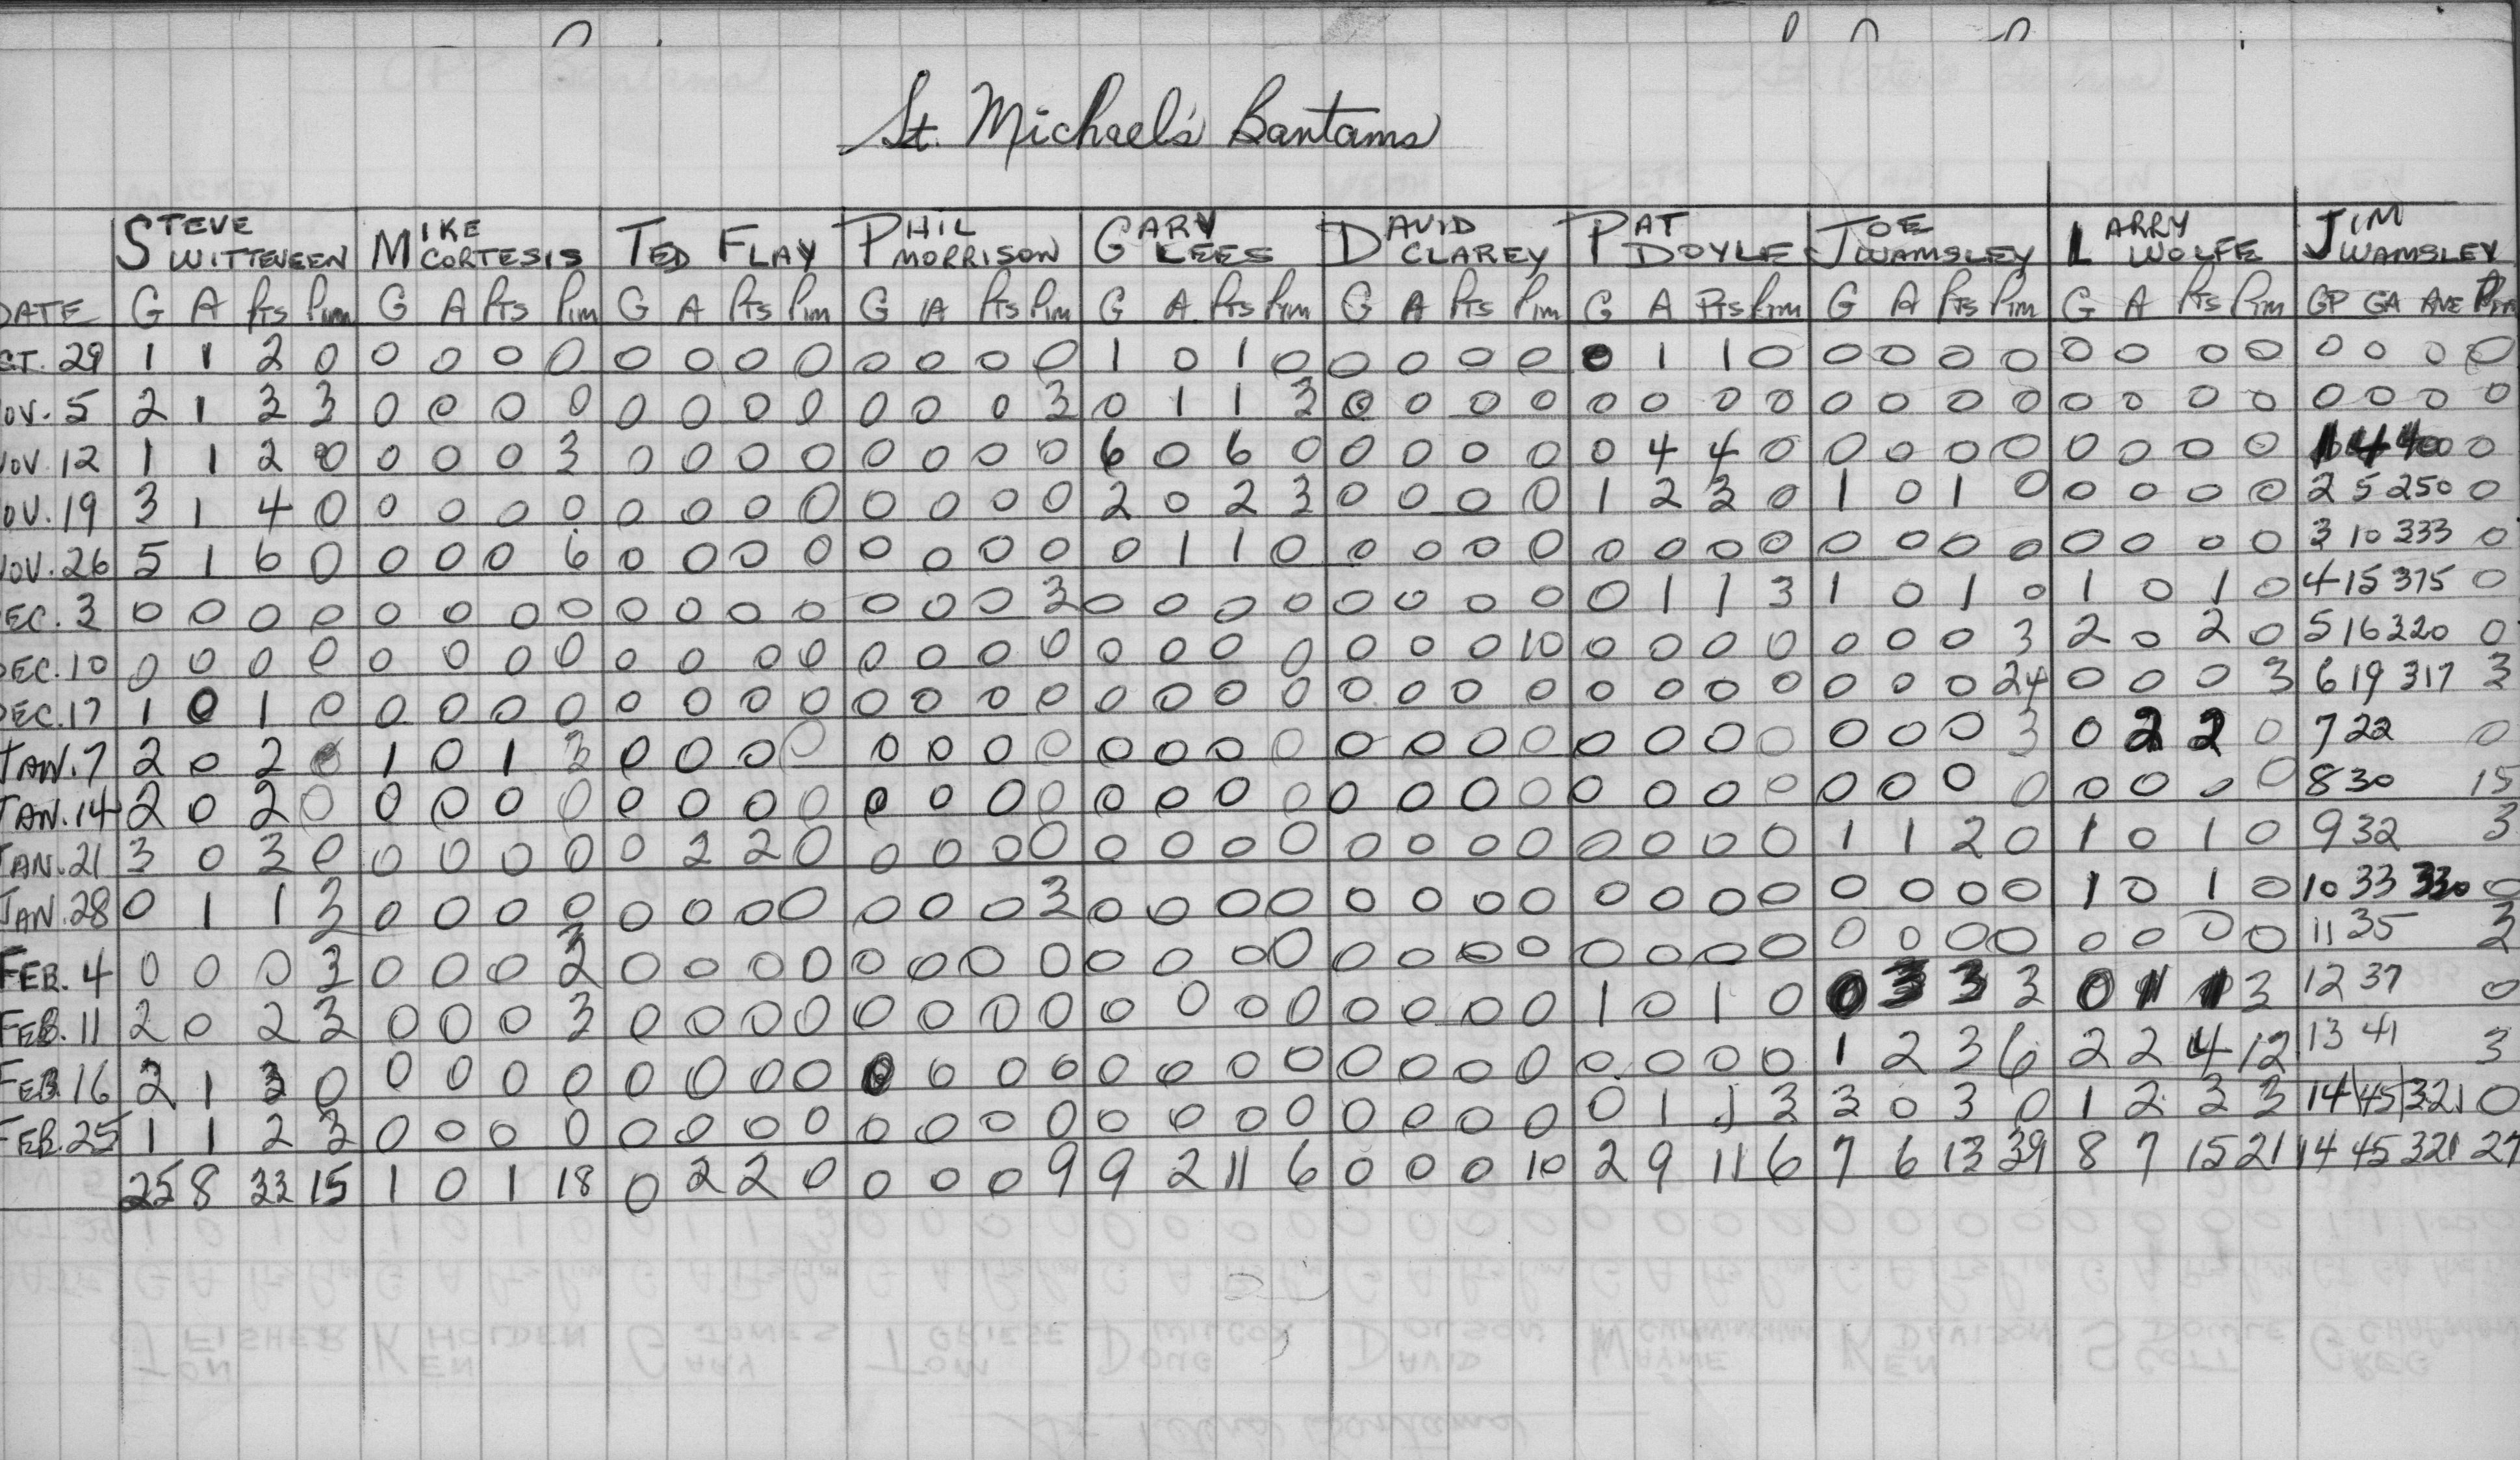 St. Michael's Bantams
STEVE WITTEVEEN MIKE CORTESIS TED FLAY PHIL MORRISON GARY LEES DAVID CLAREY PAT DOYLE JOE WAMSLEY LARRY WOLFE JIM WAMSLEY
DATE G A Pts Pim G A Pts Pim G A Pts Pim G A Pts Pim G A Pts Pim G A Pts Pim G A Pts Pim G A Pts Pim G A Pts Pim GP GA AVE Pim
CT. 29 1 1 2 0 0 0 0 0 0 0 0 0 0 0 0 0 1 0 1 0 0 0 0 0 0 1 1 0 0 0 0 0 0 0 0 0 0 0 0 0
OV. 5 2 1 3 3 0 0 0 0 0 0 0 0 0 0 0 3 0 1 1 3 0 0 0 0 0 0 0 0 0 0 0 0 0 0 0 0 0 0 0 0
NOV. 12 1 1 2 0 0 0 0 3 0 0 0 0 0 0 0 0 6 0 6 0 0 0 0 0 0 4 4 0 0 0 0 0 0 0 0 0 1 4 400 0
OV. 19 3 1 4 0 0 0 0 0 0 0 0 0 0 0 0 0 2 0 2 3 0 0 0 0 1 2 3 0 1 0 1 0 0 0 0 0 2 5 250 0
NOV. 26 5 1 6 0 0 0 0 6 0 0 0 0 0 0 0 0 0 1 1 0 0 0 0 0 0 0 0 0 0 0 0 0 0 0 0 0 3 10 333 0
EC. 3 0 0 0 0 0 0 0 0 0 0 0 0 0 0 0 3 0 0 0 0 0 0 0 0 0 1 1 3 1 0 1 0 1 0 1 0 4 15 375 0
DEC. 10 0 0 0 0 0 0 0 0 0 0 0 0 0 0 0 0 0 0 0 0 0 0 0 10 0 0 0 0 0 0 0 3 2 0 2 0 5 16 320 0
DEC. 17 1 0 1 0 0 0 0 0 0 0 0 0 0 0 0 0 0 0 0 0 0 0 0 0 0 0 0 0 0 0 0 24 0 0 0 3 6 19 317 3
JAN. 7 2 0 2 0 1 0 1 3 0 0 0 0 0 0 0 0 0 0 0 0 0 0 0 0 0 0 0 0 0 0 0 3 0 2 2 0 7 22 0
JAN. 14 2 0 2 0 0 0 0 0 0 0 0 0 0 0 0 0 0 0 0 0 0 0 0 0 0 0 0 0 0 0 0 0 0 0 0 0 8 30 15
JAN. 21 3 0 3 0 0 0 0 0 0 2 2 0 0 0 0 0 0 0 0 0 0 0 0 0 0 0 0 0 1 1 2 0 1 0 1 0 9 32 3
JAN. 28 0 1 1 3 0 0 0 0 0 0 0 0 0 0 0 3 0 0 0 0 0 0 0 0 0 0 0 0 0 0 0 0 1 0 1 0 10 33 330 0
FEB. 4 0 0 0 3 0 0 0 3 0 0 0 0 0 0 0 0 0 0 0 0 0 0 0 0 0 0 0 0 0 0 0 0 0 0 0 0 11 35 3
FEB. 11 2 0 2 3 0 0 0 3 0 0 0 0 0 0 0 0 0 0 0 0 0 0 0 0 1 0 1 0 0 3 3 3 0 1 1 3 12 37 0
FEB 16 2 1 3 0 0 0 0 0 0 0 0 0 0 0 0 0 0 0 0 0 0 0 0 0 0 0 0 0 1 2 3 6 2 2 4 12 13 41 3
FEB. 25 1 1 2 3 0 0 0 0 0 0 0 0 0 0 0 0 0 0 0 0 0 0 0 0 0 1 1 3 3 0 3 0 1 2 3 3 14 45 321 0
25 8 33 15 1 0 1 18 0 2 2 0 0 0 0 9 9 2 11 6 0 0 0 10 2 9 11 6 7 6 13 39 8 7 15 21 14 45 321 27